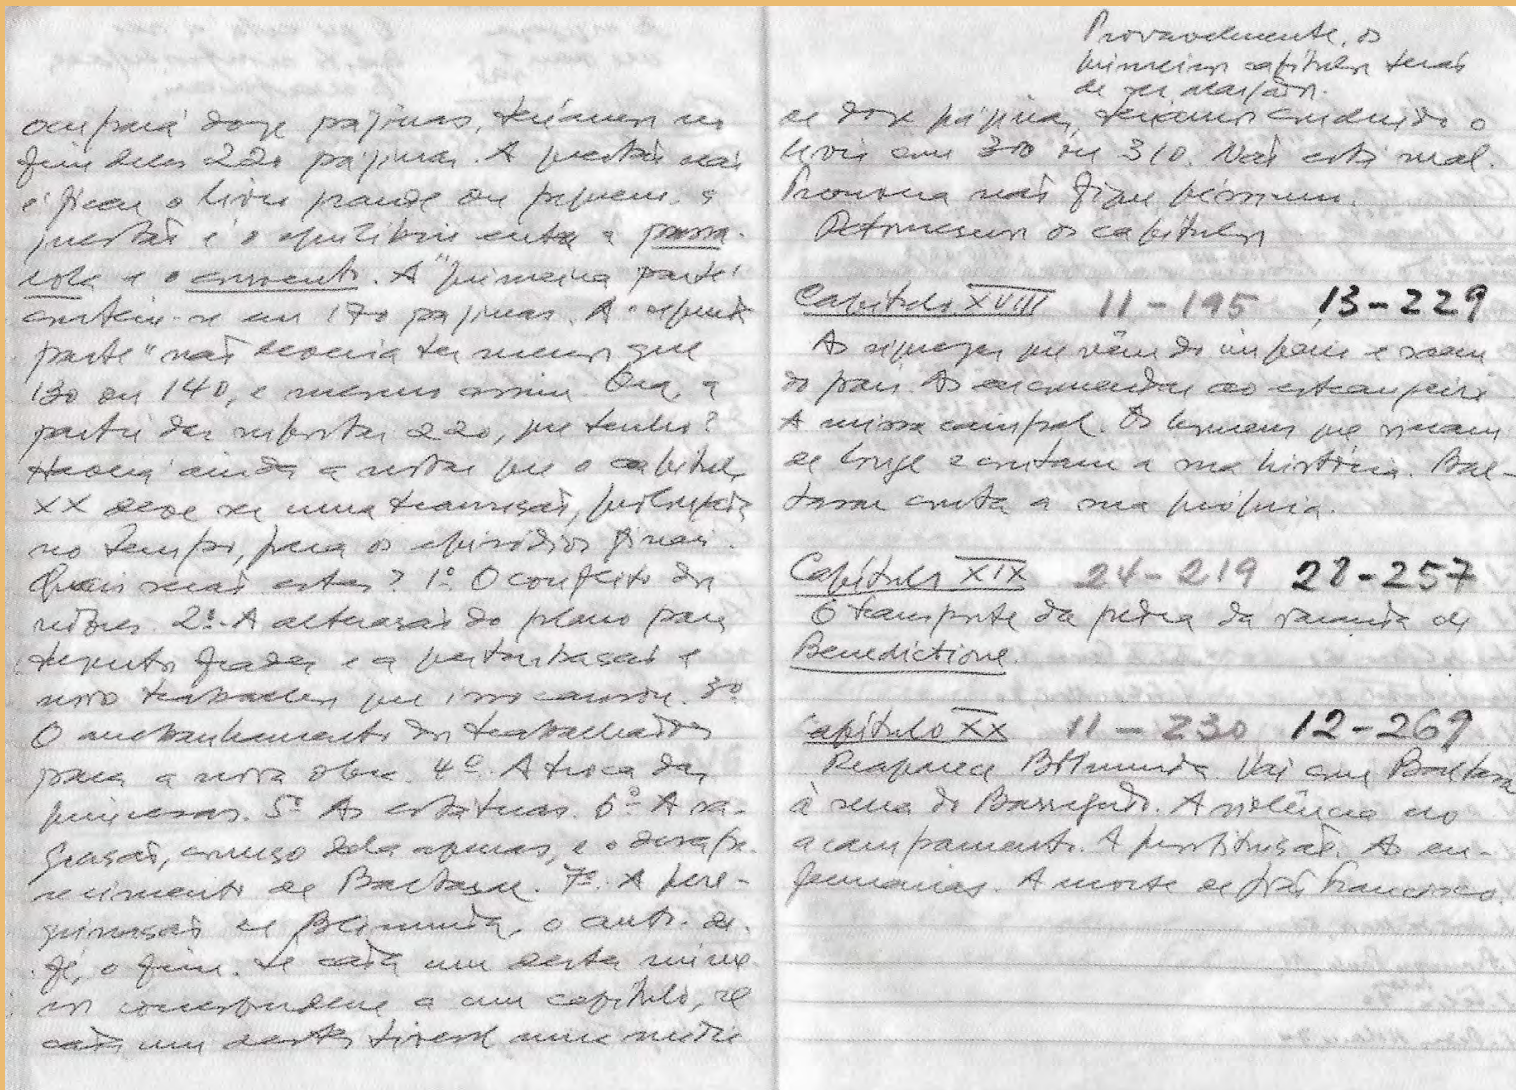 ocupará doze páginas, teríamos no
fim deles 220 páginas. A questão não
é ficar o livro grande ou pequeno. a
questão é o equilíbrio entre a passa-
rola e o convento. A "primeira parte"
contém-se em 170 páginas. A "segunda
parte" não deveria ter menos que
130 ou 140, e mesmo assim. Ora, a
partir das supostas 220, que tenho?
Haverá ainda a notar que o capítulo
XX deve ser uma transição, prolongada
no tempo, para os episódios finais.
Quais serão estes? 1º O conflito dos
2º. A alteração do plano para
trezentos frades e a perturbação e
novo trabalho que isso causou. 3º
O arrebanhamento dos trabalhadores
para a nova obra. 4º. A troca das
princesas. 5º As estátuas. 6º A sa-
gração, começo dela apenas, e o desapa-
recimento de Baltasar. 7º. A pere-
grinação de Blimunda, o auto-de-
fé, o fim. Se cada um destes núme-
ros corresponder a um capítulo, se
cada um destes tiver uma média
Provavelmente, os
primeiros capítulos terão
de ser maiores.
de doze páginas, teríamos concluído o
livro em 300 ou 310. Não está mal.
Promova não fique péssimo.
Retomemos os capítulos
Capítulo XVIII 11-195 13-229
As riquezas que vêm do império e saem
do país. As encomendas ao estrangeiro
A missa campal. Os homens que vieram
de longe e contam a sua história. Bal-
tasar conta a sua própria.
Capítulo XIX 24-219 28-257
O transporte da pedra da varanda de
Benedictione.
Capítulo XX 11-230 12-269
Reaparece Blimunda. Vai com Baltasar
à serra do Barregudo. A violência no
acampamento. A prostituição. As en-
fermarias. A morte de João Francisco.